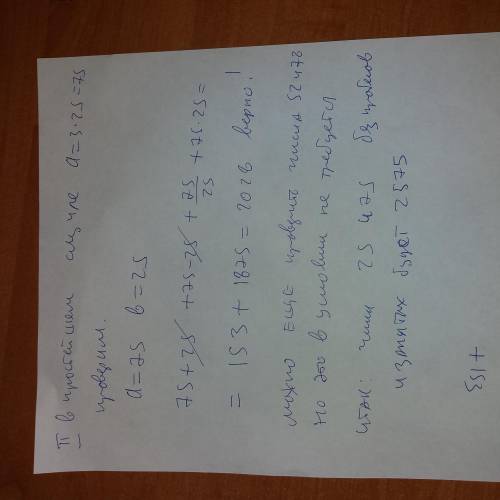 II в простейшем случае a=3·25=75
проверим.
a=75 в=25
75+25+75-25+75/25+75·25=
=153+1875=2028 верно!
можно ещё проверить числа 52 и 78
но это в условии не требуется
итак: числа 25 и 75 без пробелов
и запятых будет 2575
+153